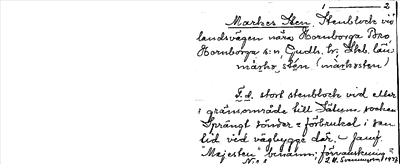 1 — 2
Markes Sten. Stenblock vid
landsvägen nära Hornborga Bro
Hornborga s:n Gudh. hr. Skb. län
märks, stén (märksten)
F.d. stort stenblock vid eller
i gränsområde till Sätuna socken
Sprängt sönder o förbrukat i sen
tid vid vägbygge där. – Jämf.
"Majesten" benämn.